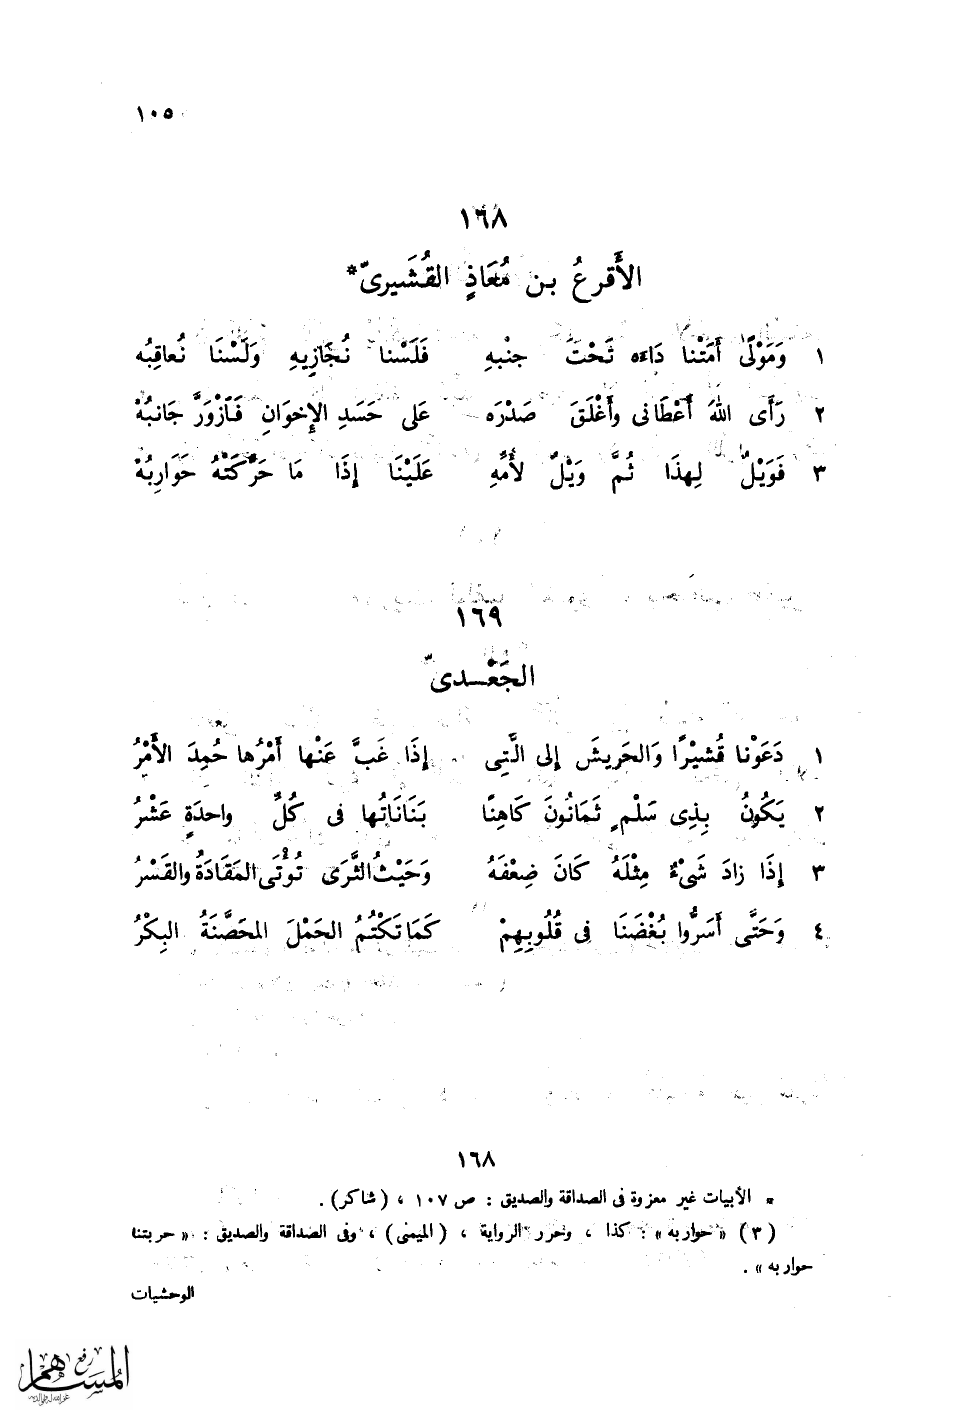 ١٠٥
١٦٨
الأَقرعُ بن مُعَاذٍ القُشَيرىّ*
١ وَمَوْلًى أَمَتْنا دَاءَه تَحْتَ جنْبهِ فَلَسْنا نُجَازِيهِ وَلَسْنَا نُعاقِبُه
٢ رَأَى اللهَ أَعْطَانى وأَغْلَقَ صَدْرَه عَلى حَسَدِ الإِخوَانِ فَازْوَرَّ جَانبُهْ
٣ فَوَيْلٌ لِهذَا ثُمَّ وَيْلٌ لأُمِّهِ عَلَيْنَا إِذَا مَا حَرَّكَتْهُ حَوَارِبُهْ
١٦٩
الجَعْدىّ
١ دَعَوْنا قُشيْرًا وَالحَريشَ إِلى الَّتِى إِذَا غَبَّ عَنْها أَمْرُها حُمِدَ الأَمْرُ
٢ يَكُونُ بِذِى سَلْمٍ ثَمَانُونَ كَاهِنًا بَنَانَاتُها فى كُلِّ واحدَةٍ عَشْرُ
٣ إِذَا زادَ شَىْءٌ مِثْلَهُ كَانَ ضِعْفَهُ وَحَيْثُ الثَّرَى تُؤْتَى المَقَادَةُ والقَسْرُ
٤ وَحَتَّى أَسَرُّوا بُغْضَنَا فى قُلُوبِهِمْ كَمَا تَكْتُمُ الحَمْلَ المحَصَّنَةُ البِكْرُ
١٦٨
* الأبيات غير معزوة فى الصداقة والصديق : ص ١٠٧ ، (شاكر) .
(٣) «حواربه» : كذا ، ونحرر الرواية ، (الميمنى) ، وفى الصداقة والصديق : «حربتنا
حواربه» .
الوحشيات
رفع
المساهم